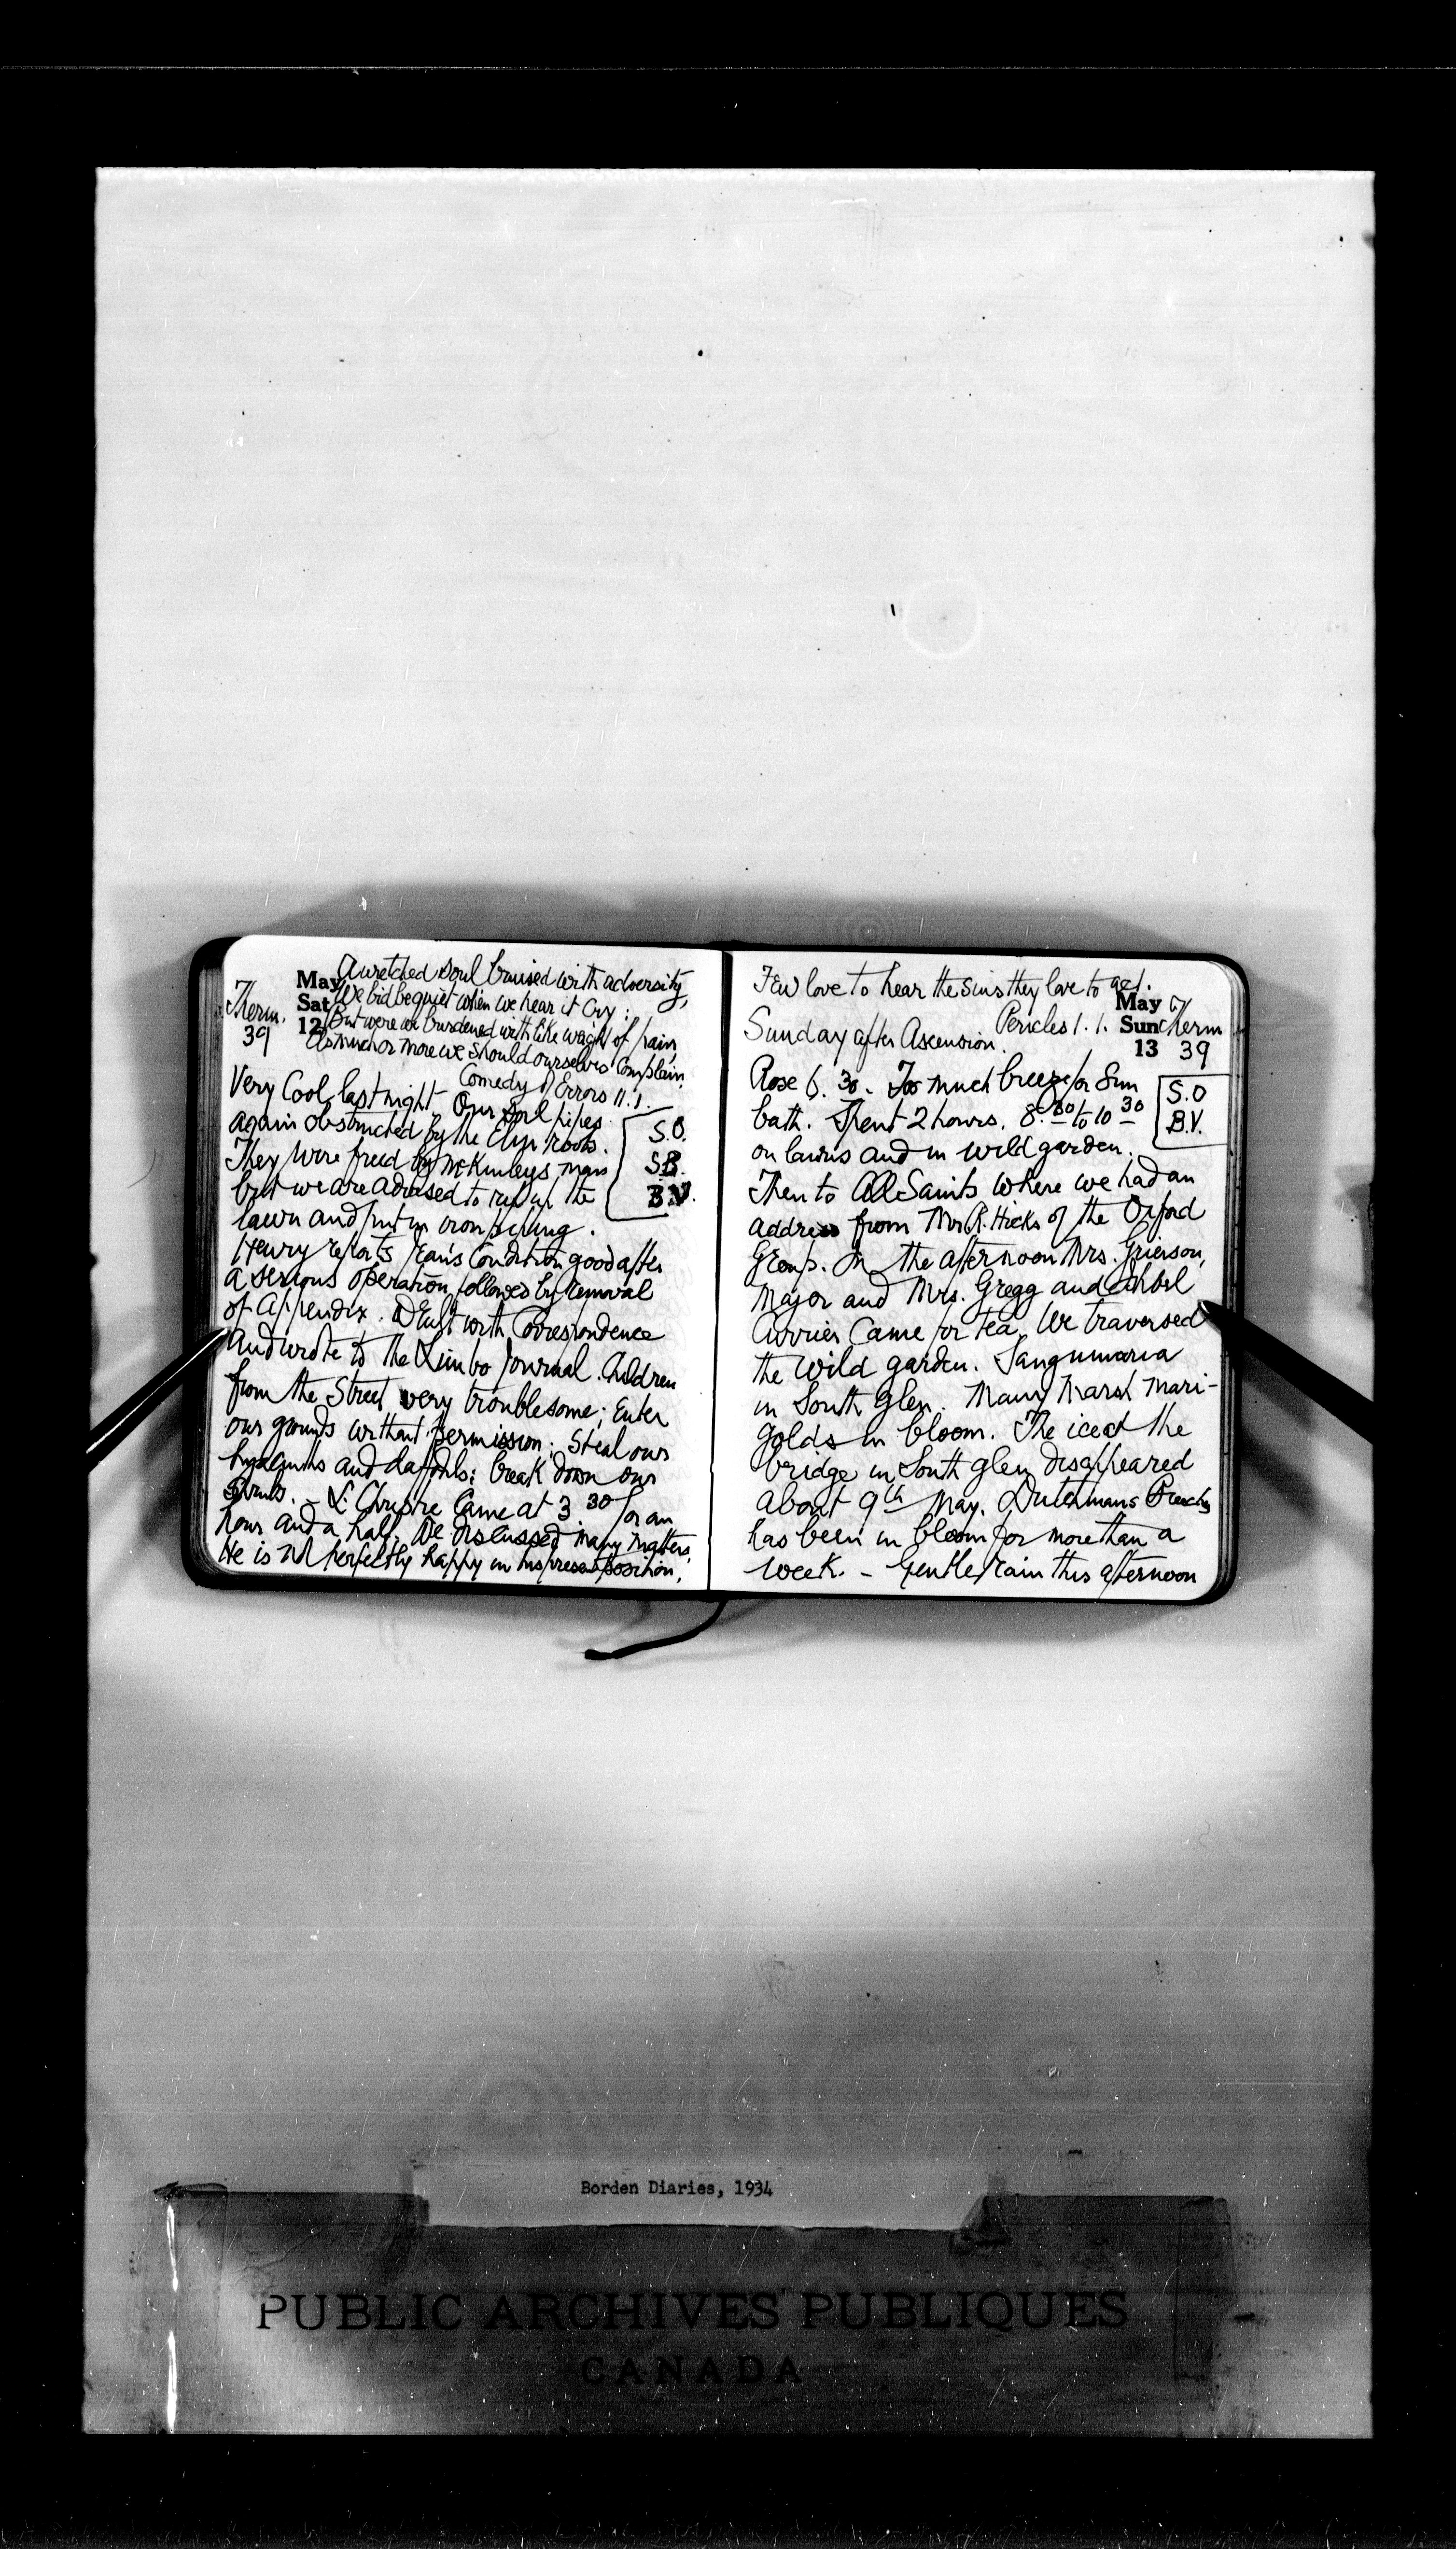 A wretched soul bruised with adversity,
May We bid be quiet when we hear it cry;
Sat But were we burdened with like weight of pain,
12 As much or more we should ourselves complain.
Therm.
39
Comedy of Errors II.1.
Very Cool last night. Our soil pipes
again obstructed by the Elm roots.
They were freed by McKinleys man
but we are advised to rip up the
lawn and put in iron piping.
S.O.
S.B.
B.V.
Henry reports Jean's condition good after
a serious operation followed by removal
of Appendix. Dealt with Correspondence
and wrote to the Limbo Journal. Children
from the Street very troublesome; Enter
our grounds without permission; Steal our
hyacinths and daffodils; break down our
shrubs. – L. Christie came at 3 30 for an
hour and a half. We discussed many matters.
He is not perfectly happy in his present position.
Few love to hear the sins they love to act.
Pericles 1.1.
May
Sun
13
Therm
39
Sunday after Ascension.
Rose 6.30. Too much breeze for Sun
bath. Spent 2 hours, 8.30 to 10 30
on lawns and in wild garden.
S.O
B.V.
Then to All Saints where we had an
address from Mr R. Hicks of the Oxford
Group. In the afternoon Mrs. Grierson,
Major and Mrs. Gregg and Ethel
Currier Came for tea. We traversed
the wild garden. Sanguinaria
in South Glen. Many Marsh Mari-
golds in bloom. The ice at the
bridge in South glen disappeared
about 9th May. Dutchmans Breeches
has been in bloom for more than a
week. – Gentle rain this afternoon
Borden Diaries, 1934
PUBLIC ARCHIVES PUBLIQUES
CANADA